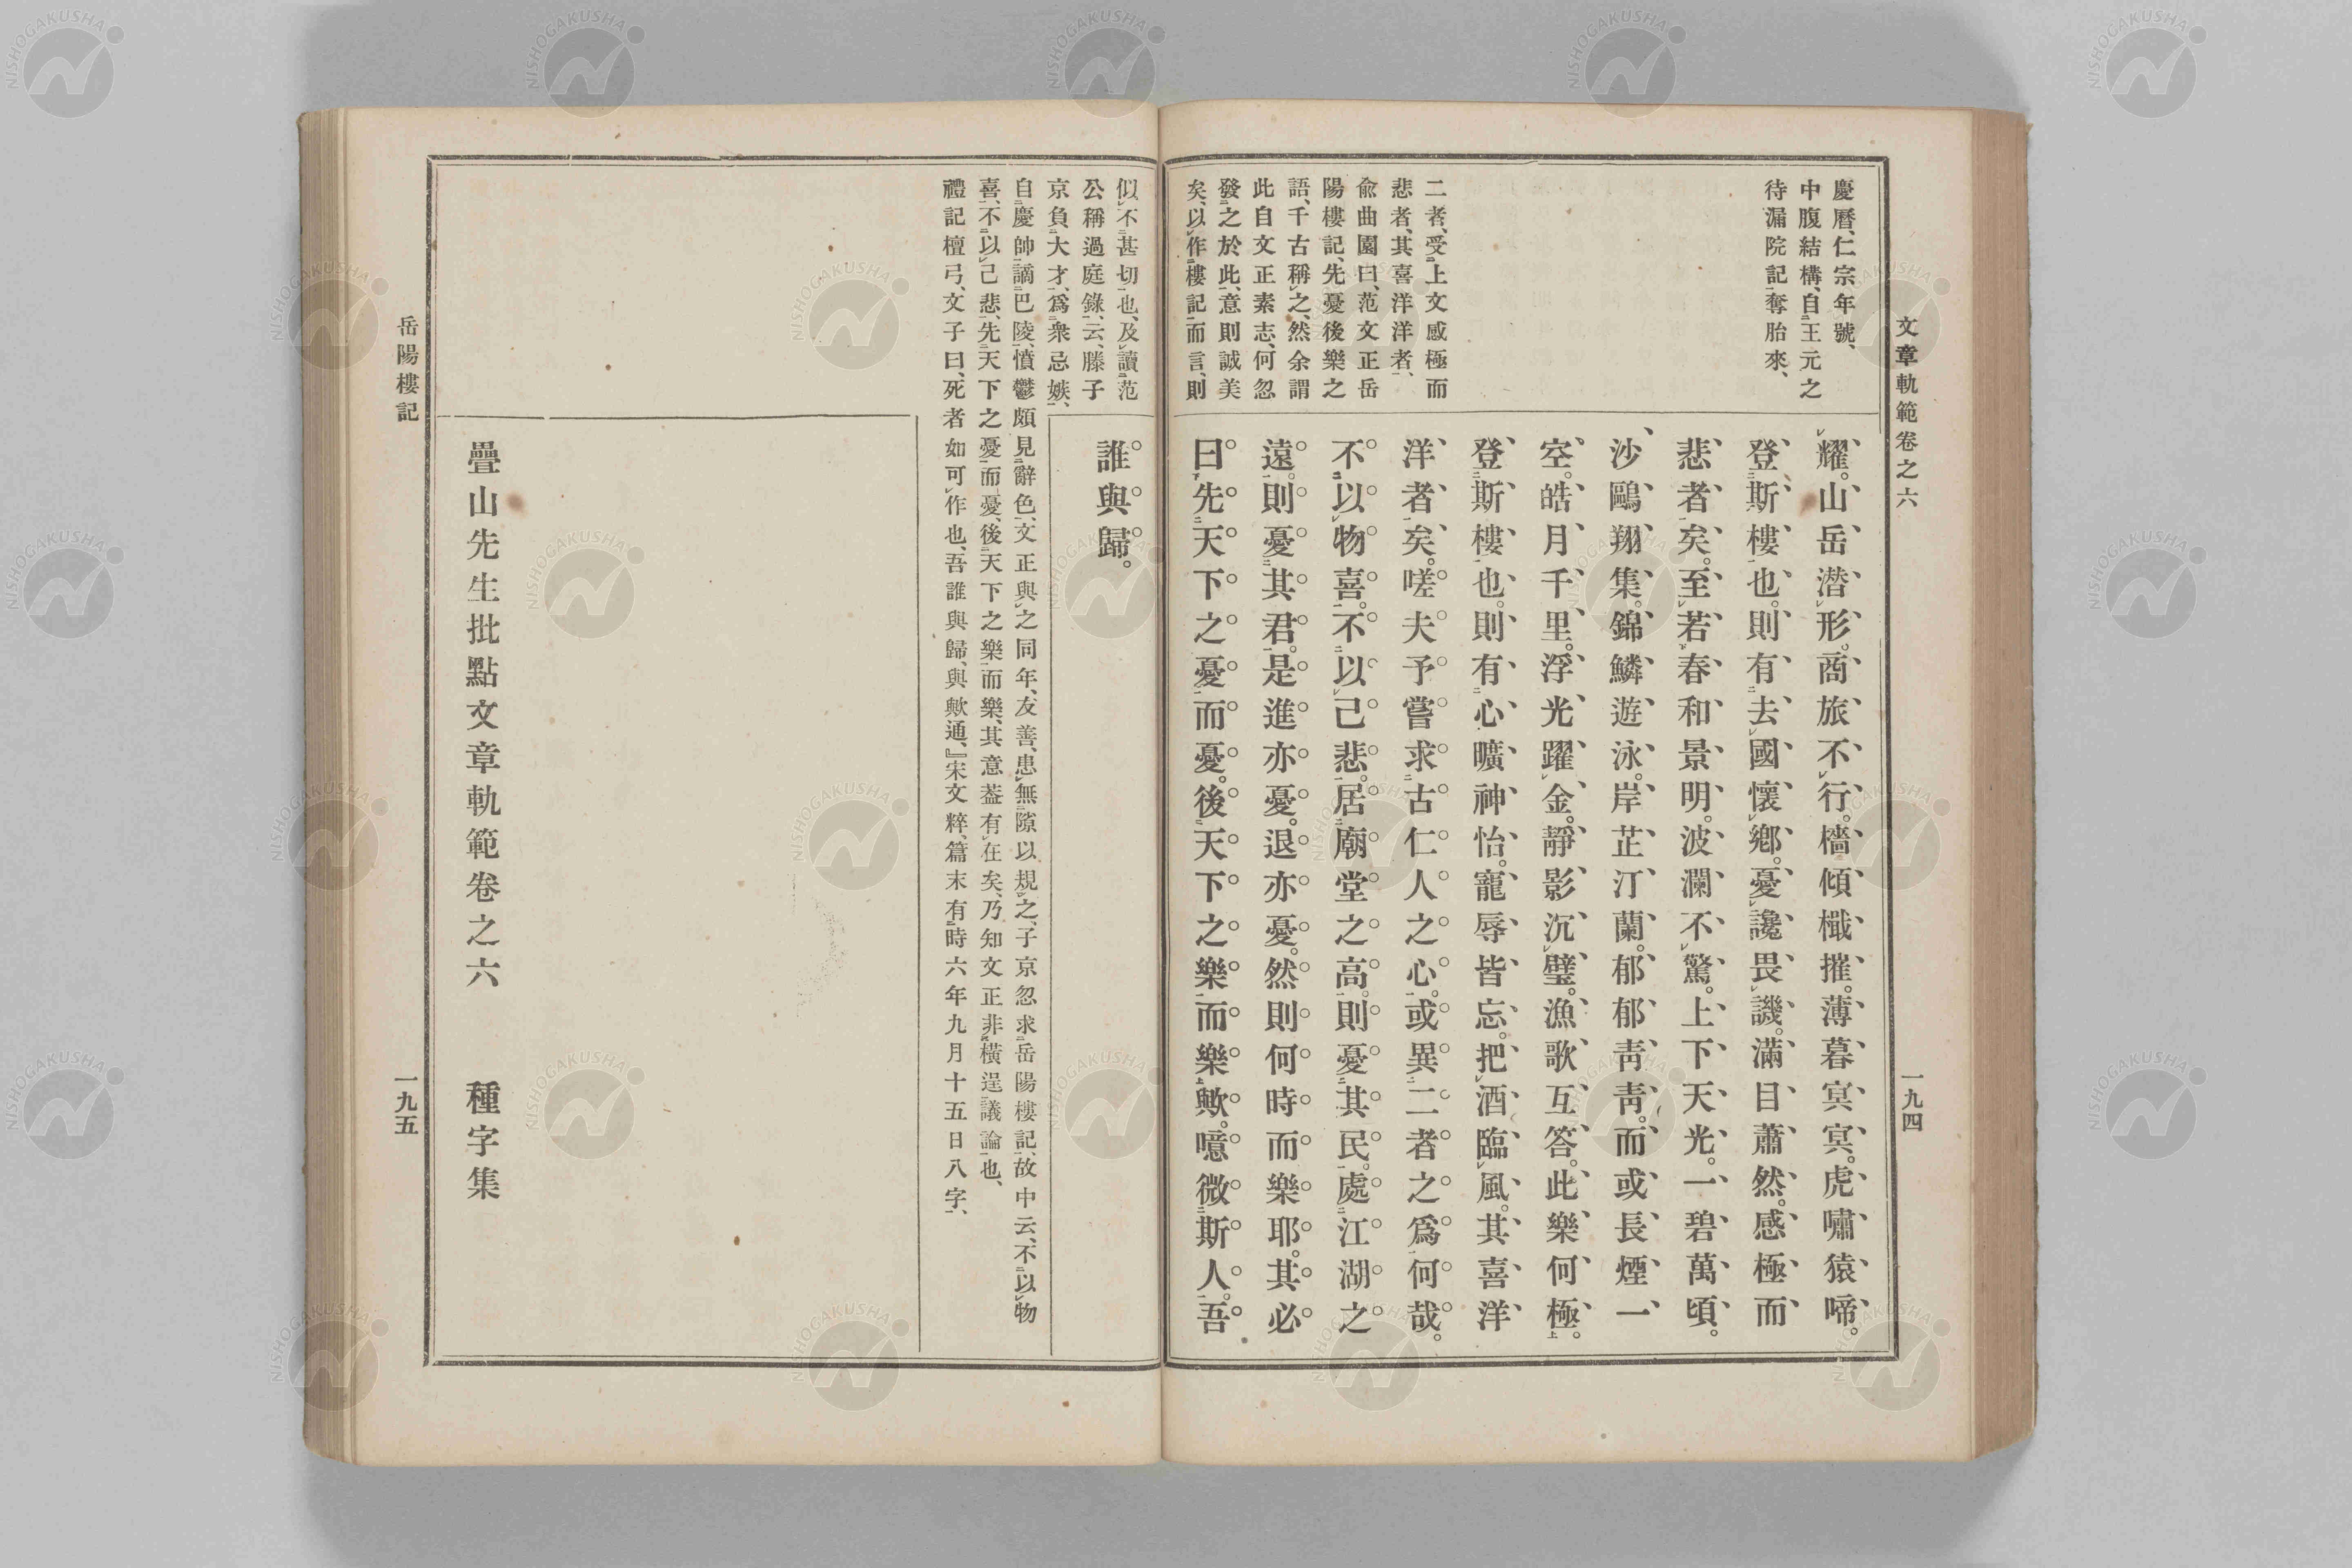 文章軌範卷之六
一九四
慶曆、仁宗年號、
中腹結構、自王元之
待漏院記奪胎來、
二者、受上文感極而
悲者、其喜洋洋者、
兪曲園曰、范文正岳
陽樓記、先憂後樂之
語、千古稱之、然余謂
此自文正素志、何忽
發之於此、意則誠美
矣、以作樓記而言、則
耀。山岳潛形。商旅不行。檣傾檝摧。薄暮冥冥。虎嘯猿啼。
登斯樓也。則有去國懷鄕。憂讒畏譏。滿目蕭然。感極而
悲者矣。至若春和景明。波瀾不驚。上下天光。一碧萬頃。
沙鷗翔集。錦鱗遊泳。岸芷汀蘭。郁郁靑靑。而或長煙一
空。皓月千里。浮光躍金。靜影沉璧。漁歌互答。此樂何極。
登斯樓也。則有心曠神怡。寵辱皆忘。把酒臨風。其喜洋
洋者矣。嗟夫予嘗求古仁人之心。或異二者之爲何哉。
不以物喜。不以己悲。居廟堂之高。則憂其民。處江湖之
遠。則憂其君。是進亦憂。退亦憂。然則何時而樂耶。其必
曰先天下之憂而憂。後天下之樂而樂歟。噫微斯人。吾
似不甚切也、及讀范
公稱過庭錄、云、滕子
京負大才、爲衆忌嫉、
誰與歸。
自慶帥謫巴陵、憤鬱頗見辭色、文正與之同年、友善、患無隙以規之、子京忽求岳陽樓記、故中云、不以物
喜、不以己悲、先天下之憂而憂、後天下之樂而樂、其意蓋有在矣、乃知文正非橫逞議論也、
禮記檀弓、文子曰、死者如可作也、吾誰與歸、與歟通、』宋文粹、篇末有時六年九月十五日八字、
疊山先生批點文章軌範卷之六 種字集
岳陽樓記
一九五